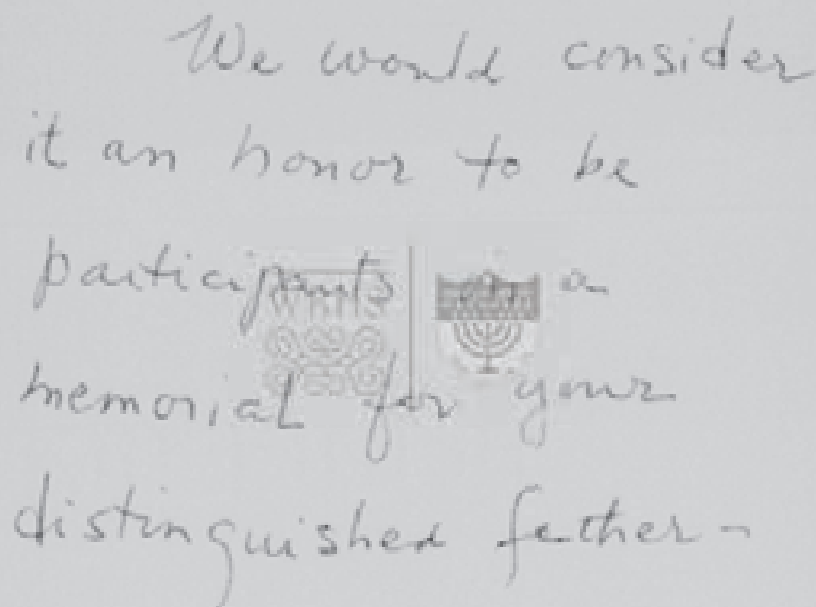 We would consider
it an honor to be
participants in a
memorial for your
distinguished father-